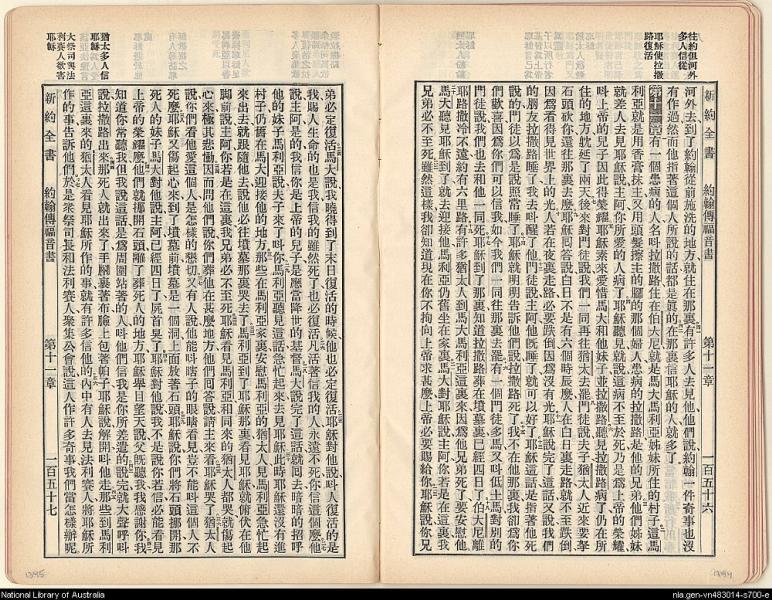 往約但河外
多人信從
耶穌使拉撒
路復活
新約全書 約翰傳福音書 第十一章 一百五十六
河外去到了約翰從前施洗的地方就住在那裏有許多人去見他他們說約翰一件奇事也沒
有作過然而他指著這個人所說的話都是眞的在那裏信耶穌的人就多了
第十一章有一個患病的人名叫拉撒路住在伯大尼就是馬大馬利亞姊妹所住的村子這馬
利亞就是用香膏抹主又用頭髮擦主的腳的那個婦人患病的拉撒路是他的兄弟他們姊妹
就差人去見耶穌說主阿你所愛的人病了耶穌聽見就說這病不至於死乃是爲上帝的榮耀
叫上帝的兒子因此得榮耀耶穌素來愛惜馬大和他妹子並拉撒路聽見拉撒路病了仍在所
住的地方躭延了兩天後來對門徒說我們一同再往猶太去罷門徒說夫子猶太人近來要拏
石頭砍你還往那裏去麼耶穌回答說白日不是有六個時辰麼人在白日裏走路就不至跌倒
因爲看得見世界上的光人若在夜裏走路必要跌倒因爲沒有光耶穌說完了這話又說我們
的朋友拉撒路睡了我去叫醒了他門徒說主阿他旣睡了就可以好了耶穌這話是指著他死
說的門徒以爲是說照常睡了耶穌就明明告訴他們說拉撒路死了我不在他那裏我卻爲你
們歡喜因爲你們可以信我如今我們一同往那裏去罷有一個門徒多馬又叫低土馬對別的
門徒說我們也去和他一同死耶穌到了那裏知道拉撒路葬在墳墓裏已經四日了伯大尼離
耶路撒冷不遠約有六里路有許多猶太人到馬大馬利亞這裏來因爲他兄弟死了要安慰他
馬大聽見耶穌到了就去迎接他馬利亞仍舊坐在家裏馬大對耶穌說主阿你若是在這裏我
兄弟必不至死雖然這樣我卻知道現在你不拘向上帝求甚麼上帝必要賜給你耶穌說你兄
弟必定復活馬大說我曉得到了末日復活的時候他也必定復活耶穌對他說叫人復活的是
我賜人生命的也是我信我的雖然死了也必復活凡活著信我的人永遠不死你信這個麼他
說主阿是的我信你是上帝的兒子是應當降世的基督馬大說完了這話就回去暗暗的招呼
他的妹子馬利亞說夫子來了叫你馬利亞聽見這話急忙起來去見耶穌此時耶穌還沒有進
村子仍舊在馬大迎接他的地方那些在馬利亞家裏安慰馬利亞的猶太人見馬利亞急忙起
來出去就跟隨他去說他必往墳墓那裏哭去了馬利亞到了耶穌那裏看見耶穌就俯伏在他
腳前說主阿你若是在這裏我兄弟必不至死耶穌看見馬利亞和同來的猶太人都哭就傷起
心來極其悲慟因而問他們說你們葬他在甚麼地方他們回答說請主來看耶穌哭了猶太人
說你們看他愛這個人是怎樣的懇切又有人說他能叫瞎子的眼睛看見豈不能叫這個人不
死麼耶穌又傷起心來到了墳墓前墳墓是一個洞上面放著石頭耶穌說你們將石頭挪開那
死人的妹子馬大對他說主阿已經四日了屍首臭了耶穌對他說我不是說你若信必能看見
上帝的榮耀麼他們就挪開石頭離了葬死人的地方耶穌舉目望天說父旣聽我我感謝你我
知道你常聽我但我說這話是爲周圍站著的人叫他們信我是你所差遣的說完就大聲呼叫
說拉撒路出來那死人就出來了手腳裹著布臉上包著帕子耶穌說解開叫他走那些到馬利
亞這裏來的猶太人看見耶穌所作的事就有許多信他的內中有人去見法利賽人將耶穌所
作的事告訴他們於是衆祭司長和法利賽人衆集公會說這人作許多奇事我們當怎樣辦呢
新約全書 約翰傳福音書 第十一章 一百五十七
猶太多人信
耶穌
大祭司與法
利賽人欲害
耶穌
National Library of Australia
nla.gen-vn483014-s700-e